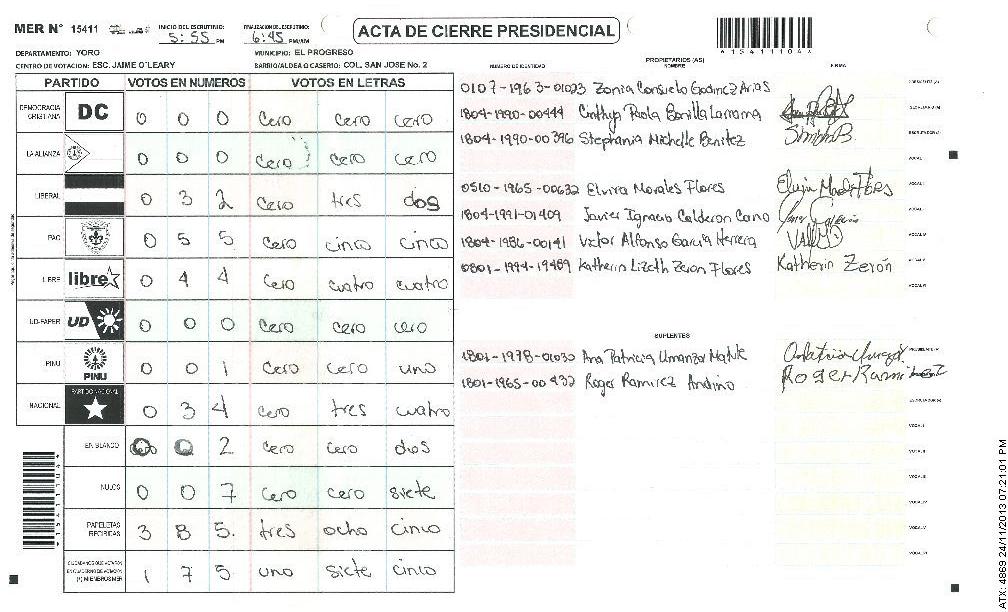 MER N° 15411 INICIO DEL ESCRUTINIO: 5:55 PM FINALIZACION DEL ESCRUTINIO: 6:45 PM/AM ACTA DE CIERRE PRESIDENCIAL
DEPARTAMENTO: YORO MUNICIPIO: EL PROGRESO
CENTRO DE VOTACION: ESC. JAIME O'LEARY BARRIO/ALDEA O CASERIO: COL. SAN JOSE No. 2
154111044
PARTIDO VOTOS EN NUMEROS VOTOS EN LETRAS
DEMOCRACIA CRISTIANA DC 0 0 0 Cero Cero Cero
LA ALIANZA 0 0 0 Cero Cero Cero
LIBERAL 0 3 2 Cero tres dos
PAC 0 5 5 Cero cinco cinco
LIBRE libre 0 4 4 Cero cuatro cuatro
UD-FAPER UD 0 0 0 Cero Cero Cero
PINU PINU 0 0 1 Cero Cero uno
NACIONAL PARTIDO NACIONAL 0 3 4 Cero tres cuatro
EN BLANCO 0 0 2 Cero Cero dos
NULOS 0 0 7 Cero Cero siete
PAPELETAS RECIBIDAS 3 8 5. tres ocho cinco
CIUDADANOS QUE VOTARON EN CUADERNO DE VOTACION (+) MIEMBROS MER 1 7 5. uno siete cinco
NUMERO DE IDENTIDAD PROPIETARIOS (AS) NOMBRE FIRMA
0107-1963-01023 Zonia Consuelo Godinez Arias
1804-1990-00444 Cinthya Paola Bonilla Larrama
1804-1990-00396 Stephania Michelle Benitez
0510-1965-00632 Elvira Morales Flores
1804-1991-01409 Javier Ignacio Calderon Cano
1804-1986-00141 Victor Alfonso Garcia Herrera
0801-1994-19489 Katherin Lizeth Zeron Flores Katherin Zerón
SUPLENTES
1801-1978-01030 Ana Patricia Umanzor Matute
1801-1965-00432 Roger Ramirez Andino Roger Ramirez
ATX: 4869 24/11/2013 07:21:01 PM